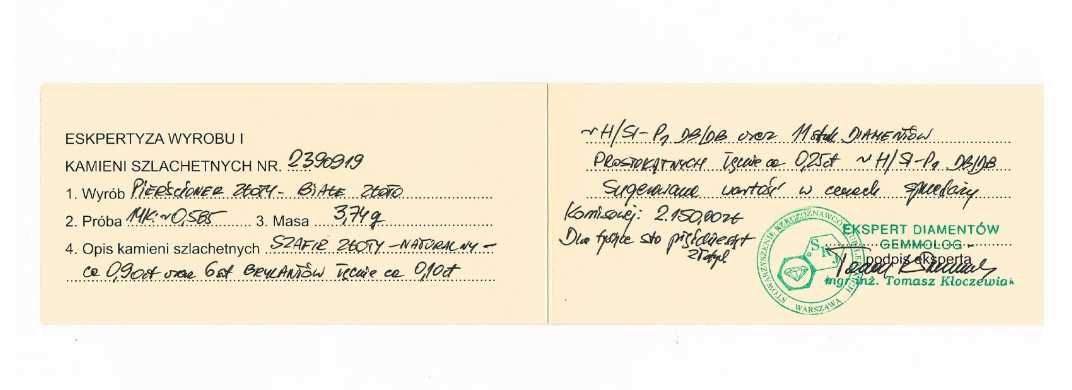 ESKPERTYZA WYROBU I
KAMIENI SZLACHETNYCH NR. 2390919
1. Wyrób PIERŚCIONEK ZŁOTY - BIAŁE ZŁOTO
2. Próba 14K ~0,585 3. Masa 3,74g
4. Opis kamieni szlachetnych SZAFIR ZŁOTY - NATURALNY -
ca 0,90ct oraz 6szt BRYLANTÓW łącznie ca 0,10ct
~H/SI-P1 DB/DB oraz 11 sztuk DIAMENTÓW
PROSTOKĄTNYCH łącznie ca 0,25ct ~H/SI-P1 DB/DB
Sugerowana wartość w cenach sprzedaży
Komisowej: 2.150,00zł
Dwa tysiące sto pięćdziesiąt
złotych
STOWARZYSZENIE RZECZOZNAWCÓW
WARSZAWA
SRJ
EKSPERT DIAMENTÓW
GEMMOLOG
podpis eksperta
mgr inż. Tomasz Kłoczewiak